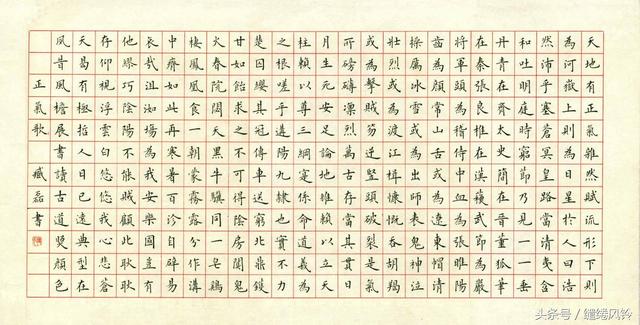 天地有正氣雜然賦流形下則
為河嶽上則為日星於人曰浩
然沛乎塞蒼冥皇路當清夷含
和吐明庭時窮節乃見一一垂
丹青在齊太史簡在晉董狐筆
在秦張良椎在漢蘇武節為嚴
將軍頭為嵇侍中血為張睢陽
齒為顏常山舌或為遼東帽清
操厲冰雪或為出師表鬼神泣
壯烈或為渡江楫慷慨吞胡羯
或為擊賊笏逆豎頭破裂是氣
所磅礴凜烈萬古存當其貫日
月生死安足論地維賴以立天
柱賴以尊三綱實係命道義為
之根嗟予遘陽九隸也實不力
楚囚纓其冠傳車送窮北鼎鑊
甘如飴求之不可得陰房闃鬼
火春院閟天黑牛驥同一皂雞
棲鳳凰食一朝蒙霧露分作溝
中瘠如此再寒暑百沴自辟易
哀哉沮洳場為我安樂國豈有
他繆巧陰陽不能賊顧此耿耿
存仰視浮雲白悠悠我心悲蒼
天曷有極哲人日已遠典型在
夙昔風檐展書讀古道照顏色
正氣歌 臧磊書
头条号/缱绻风铃